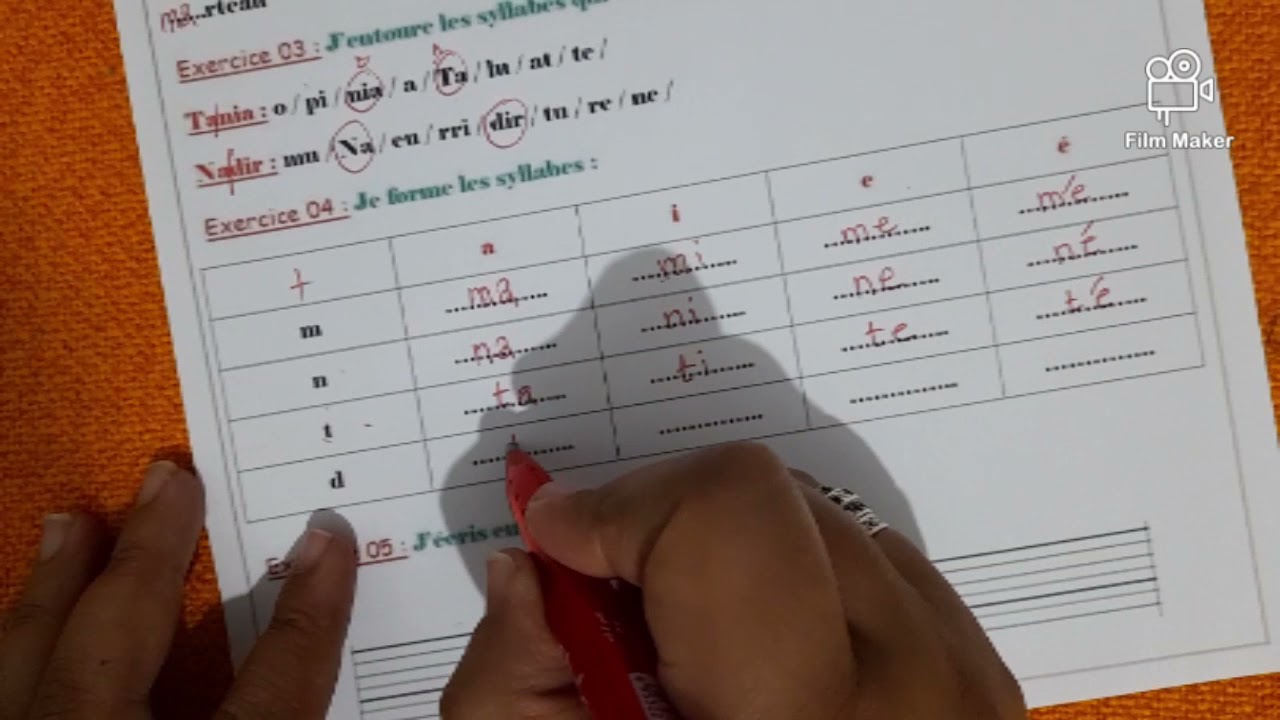 ma...rteau
Exercice 03 : J'entoure les syllabes
Tania : o / pi / nia / a / Ta / lu / at / te /
Nadir : mu / Na / en / rri / dir / tu / re / ne /
Exercice 04 : Je forme les syllabes :
+ a i e é
m ma mi me mé
n na ni ne né
t ta ti te té
d
05 : J'écris
Film Maker